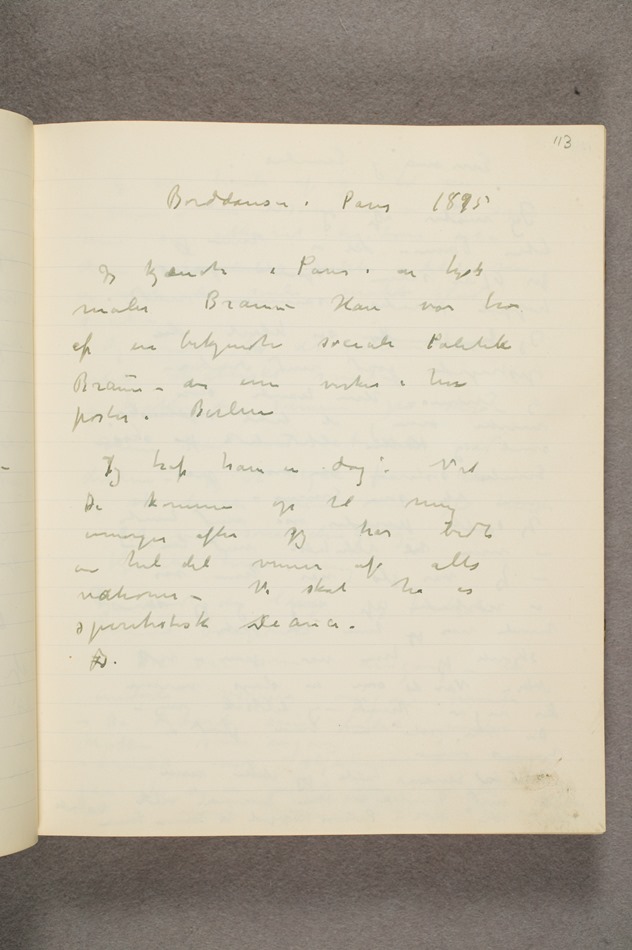 113
Borddansen i Paris 1895
Jg kjendte i Paris i en tysk
maler Braun – Han var bror
af en bekjendte sociale Politik
Braun – der end virker i
poster i Berlin
Jg traf ham en dag: Vil
De komme op til mig
imorgen aften Jg har bedt
en hel del venner af alls
nationer – Vi skal ha en
spiritistisk seance.